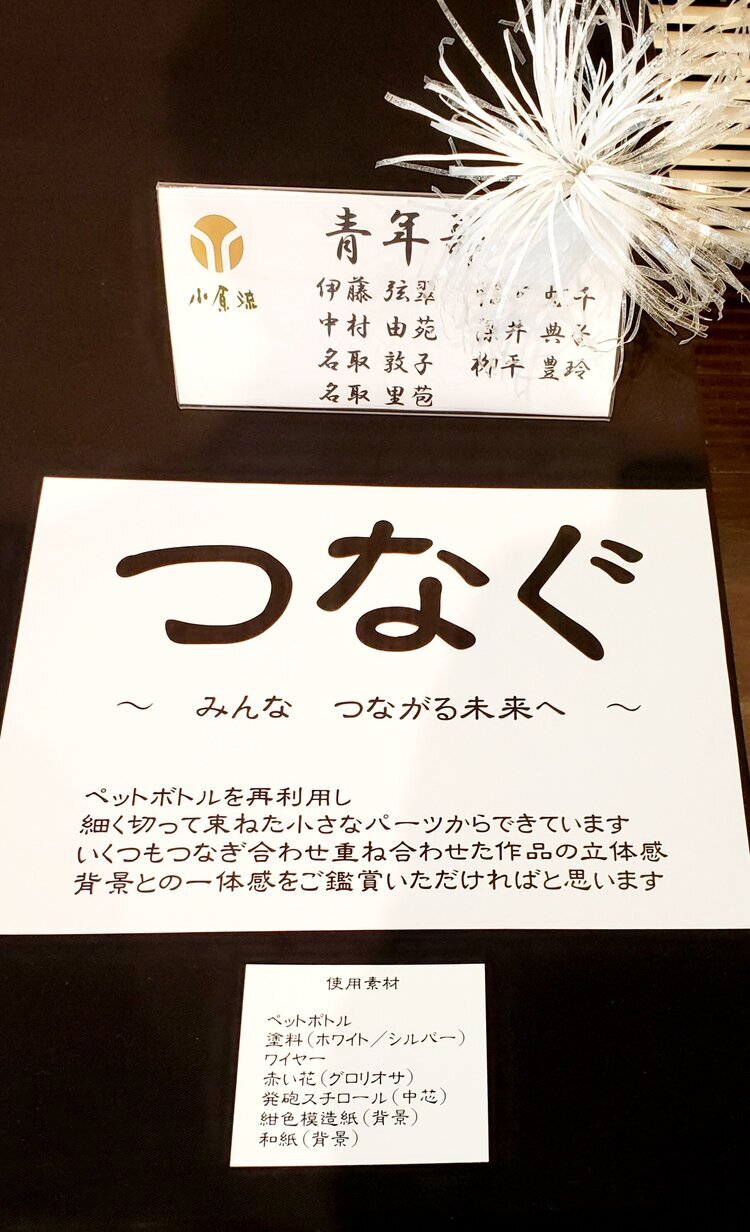 小原流
青年
伊藤 弦翠
中村 由苑
名取 敦子
名取 里苞
千
井 典
柳平 豊玲
つなぐ
～ みんな つながる未来へ ～
ペットボトルを再利用し
細く切って束ねた小さなパーツからできています
いくつもつなぎ合わせ重ね合わせた作品の立体感
背景との一体感をご鑑賞いただければと思います
使用素材
ペットボトル
塗料(ホワイト／シルバー)
ワイヤー
赤い花(グロリオサ)
発砲スチロール(中芯)
紺色模造紙(背景)
和紙(背景)